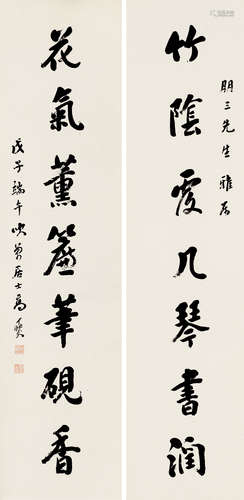 朙三先生雅属
竹陰覆几琴書潤
花氣薰簾筆硯香
戊子端午吹萬居士高燮